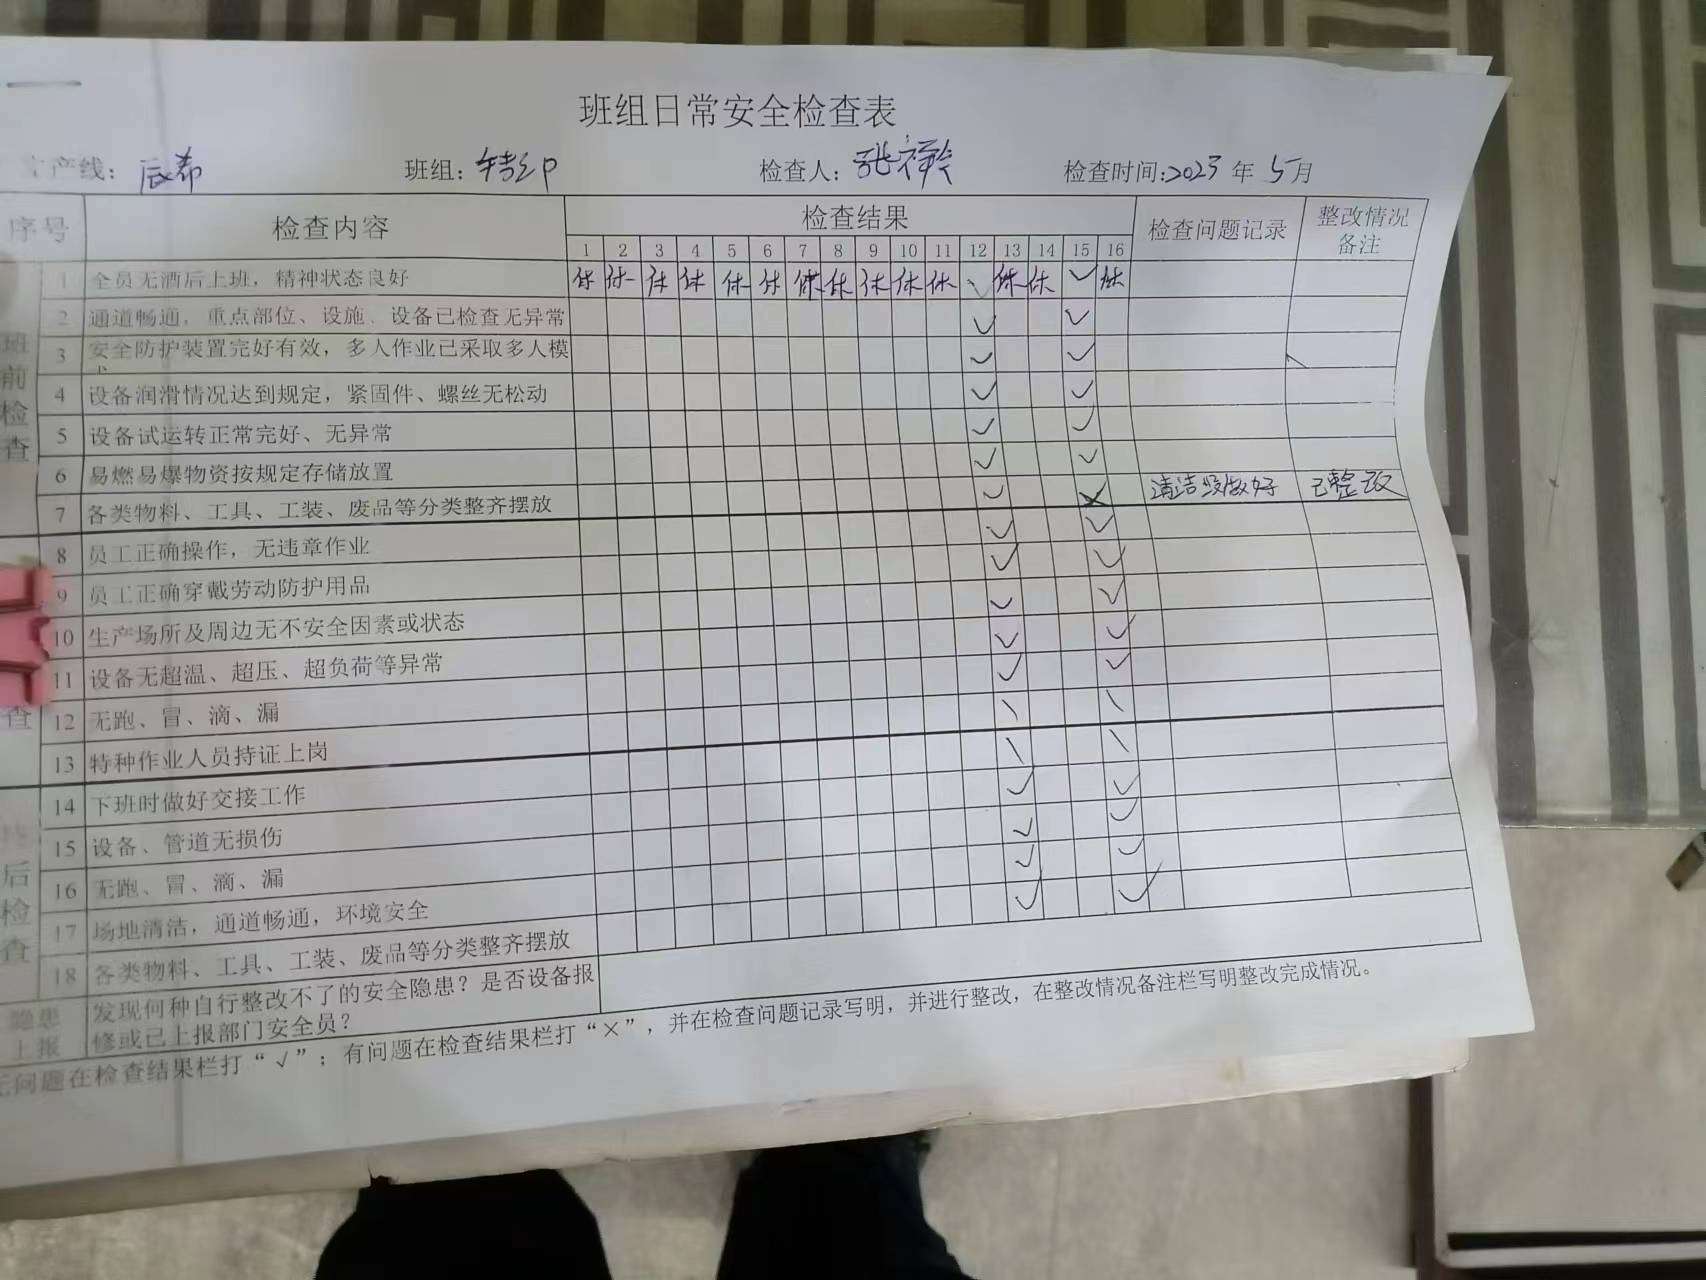 班组日常安全检查表
产线: 辰希 班组: 转印 检查人: 张祥 检查时间:2023 年 5月
序号 检查内容 检查结果 检查问题记录 整改情况备注
1 2 3 4 5 6 7 8 9 10 11 12 13 14 15 16
班前检查
1 全员无酒后上班，精神状态良好 休 休 休 休 休 休 休 休 休 休 休 ✓ 休 休 ✓ 休
2 通道畅通，重点部位、设施、设备已检查无异常 ✓ ✓
3 安全防护装置完好有效，多人作业已采取多人模 ✓ ✓
4 设备润滑情况达到规定，紧固件、螺丝无松动 ✓ ✓
5 设备试运转正常完好、无异常 ✓ ✓
6 易燃易爆物资按规定存储放置 ✓ ✓
7 各类物料、工具、工装、废品等分类整齐摆放 ✓ × 清洁没做好 已整改
查
8 员工正确操作，无违章作业 ✓ ✓
9 员工正确穿戴劳动防护用品 ✓ ✓
10 生产场所及周边无不安全因素或状态 ✓ ✓
11 设备无超温、超压、超负荷等异常 ✓ ✓
12 无跑、冒、滴、漏 ✓ ✓
13 特种作业人员持证上岗 \ \
后检查
14 下班时做好交接工作 \ \
15 设备、管道无损伤 ✓ ✓
16 无跑、冒、滴、漏 ✓ ✓
17 场地清洁，通道畅通，环境安全 ✓ ✓
18 各类物料、工具、工装、废品等分类整齐摆放 ✓ ✓
隐患上报
发现何种自行整改不了的安全隐患？是否设备报
修或已上报部门安全员？
无问题在检查结果栏打“√”；有问题在检查结果栏打“×”，并在检查问题记录写明，并进行整改，在整改情况备注栏写明整改完成情况。